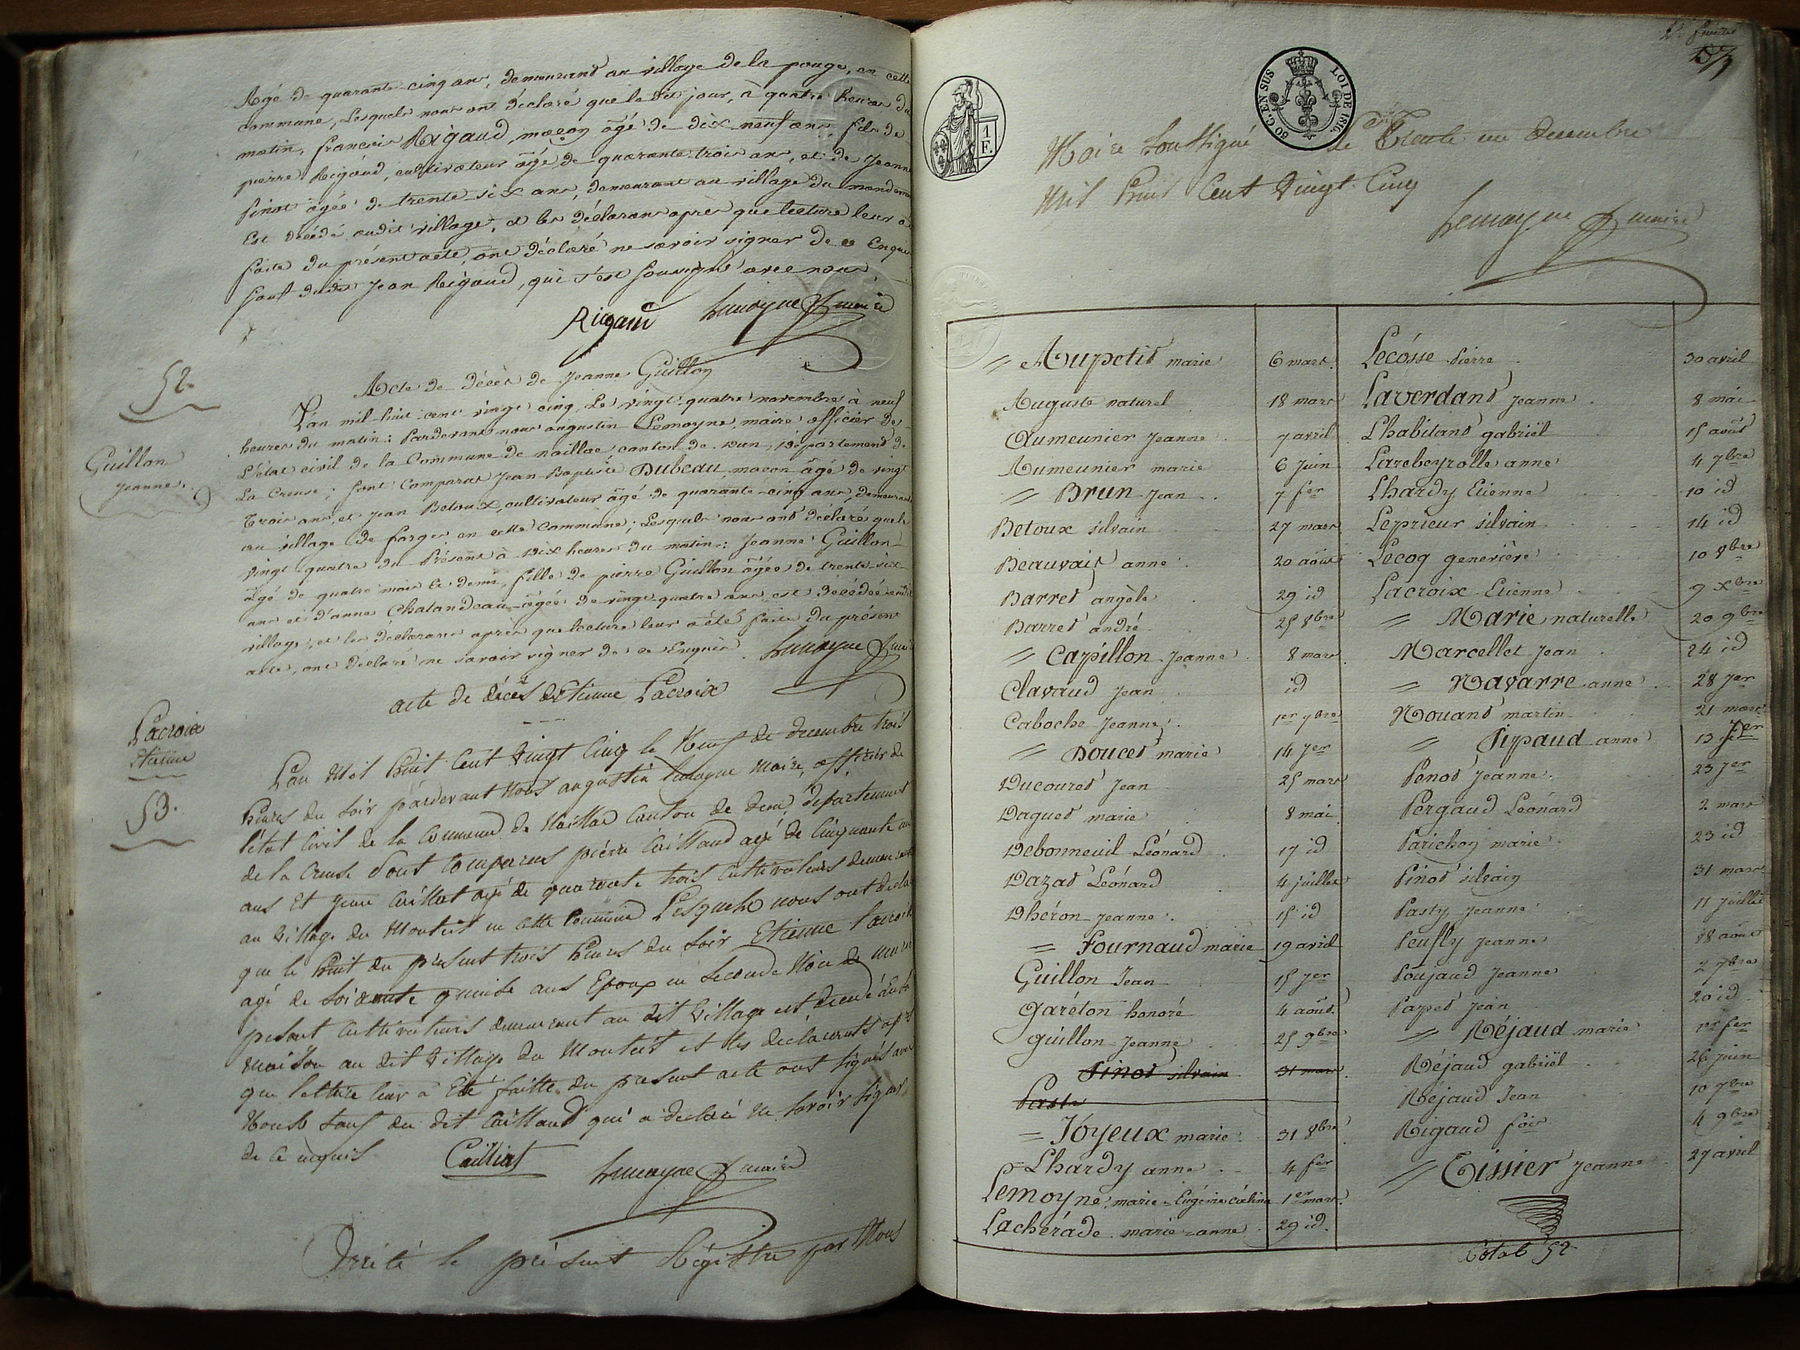 Agé de quarante cinq ans, demeurand au village de la pouge, en cette
commune, Lesquels nous ont déclaré que le dit jour, à quatre heures du
matin, françois Rigaud, maçon âgé de dix-neuf ans, fils de
pierre Rigaud, cultivateur âgé de quarante trois ans, et de Jeanne
pinot âgée de trente six ans, demeurant au village du
Est décédé audit village, et les déclarans après que lecture leur a
faite du présent acte, ont déclaré ne savoir signer de ce Enquis
Sauf dudit Jean Rigaud, qui s'est soussigné avec nous.
Rigaud Lemoyne maire
52.
Acte de décès de Jeanne Guillon
Guillon
Jeanne.
L'an mil huit cent vingt cinq, Le vingt-quatre novembre à neuf
heures du matin; Pardevant nous augustin Lemoyne, maire officier de
l'état civil de la Commune de naillac canton de Dun, Département de
La Creuse; sont Comparus Jean Baptiste Dubeau maçon âgé de vingt
trois ans, et Jean Betoux, cultivateur âgé de quarante-cinq ans, demeurant
au village de farges en cette Commune; Lesquels nous ont déclaré que le
vingt quatre du Présent à Dix heures du matin; Jeanne Guillon
âgé de quatre mois et demi, fille de pierre Guillon âgée de trente-six
ans et d'anne Chalandeau âgée de vingt-quatre ans est décédée audit
village, et les déclarans après que lecture leur a été faite du présent
acte, ont déclaré ne savoir signer de ce Enquis. Lemoyne maire
acte de décès d'Etienne Lacroix
Lacroix
Etienne
53.
L'an Mil huit Cent Vingt Cinq le Neuf de decembre trois
heures du soir pardevant Nous augustin Lemoyne Maire, officier de
l'état Civil de la Commune de Naillac Canton de dun département
de la Creuse Sont Comparus pierre Caillaud agé de Cinquante un
ans Et Jean Cailliat agé de quarante trois Cultivateurs demeurant
au Village du Monteil en cette Commune Lesquels nous ont déclaré
que le huit du présent trois heures du soir Etienne Lacroix
agé de soixante quinze ans Epoux en seconde Noce de
Cultivateurs demeurant au dit Village est decedé dans sa
Maison au dit Village du Monteil et les declarants après
que lecture leur a Eté faitte du present acte ont signés avec
Nous Sauf du dit Caillaud qui a declaré Ne Savoir signer
de Ce enquis Cailliat Lemoyne maire
Arrêté le présent Régistre par Nous
57
50 C. EN SUS LOI DE 1816.
1 F.
Maire Soussigné le Trente un Decembre
Mil huit Cent Vingt Cinq
Lemoyne maire
= Aupetit marie 6 mars. Lecósse Pierre 30 avril
Auguste naturel 18 mars Laverdant Jeanne 8 mai
Aumeunier Jeanne 7 avril Lhabitant gabriël 15 août
Aumeunier marie 6 Juin Larebeyrolle anne 4 7bre
= Brun Jean 7 fer Lhardy Etienne 10 id
Betoux silvain 27 mars Leprieur silvain 14 id
Beauvais anne 20 août Lecoq generiève 10 8bre
Barret angèle 29 id Lacroix Etienne 9 Xbre
Barret andré 25 8bre = Marie naturelle 20 9bre
= Capillon Jeanne 8 mars Marcellet Jean 24 id
Clavaud Jean id = Navarre anne 28 Jer
Caboche Jeanne 1er 7bre Nouant martin 21 mars
= Doucet marie 14 Jer = Pipaud anne 13 Jer
Ducouret Jean 25 mars Penot Jeanne 23 Jer
Daguet marie 8 mai Pergaud Léonard 2 mars
Debonneuil Léonard 17 id Parichon marie 23 id
Dazat Léonard 4 juillet Pinot silvain 31 mars
Dhéron Jeanne 15 id Pasty Jeanne 11 juillet
= Fournaud marie 19 avril Peufly Jeanne 18 août
Guillon Jean 15 Jer Poujaud Jeanne 2 9bre
Garéton honoré 4 août. Papet Jean 20 id
guillon Jeanne 25 9bre = Réjaud marie 1er fer
Pinot silvain 31 mars Réjaud gabriël 26 juin
Réjaud Jean 10 7bre
= Joyeux marie 31 8bre Rigaud fois 4 9bre
= Lhardy anne 4 fer = Tissier Jeanne 27 avril
Lemoyne marie-Eugénie Célina 1er mars
Lacherade marie-anne 29 id.
Total 52